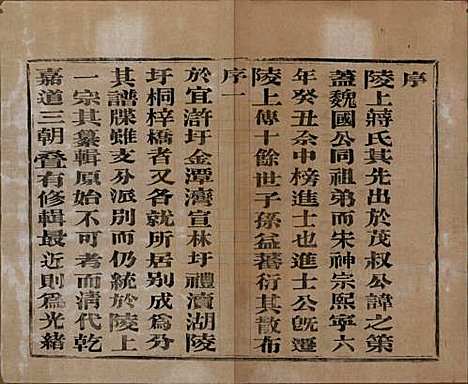 序
陵上蔣氏其先出於茂叔公諱之策
蓋魏國公同祖弟而宋神宗熙寧六
年癸丑余中榜進士也進士公既遷
陵上傳十餘世子孫益蕃衍其散布
序一
於宜滸圩金潭濟宣林圩禮瀆湖陵
圩桐梓橋者又各以所居別成爲分
其譜牒雖支分派別而仍統於陵上
一宗其纂輯原始不可考而清代乾
嘉道三朝疊有修輯最近則爲光緒